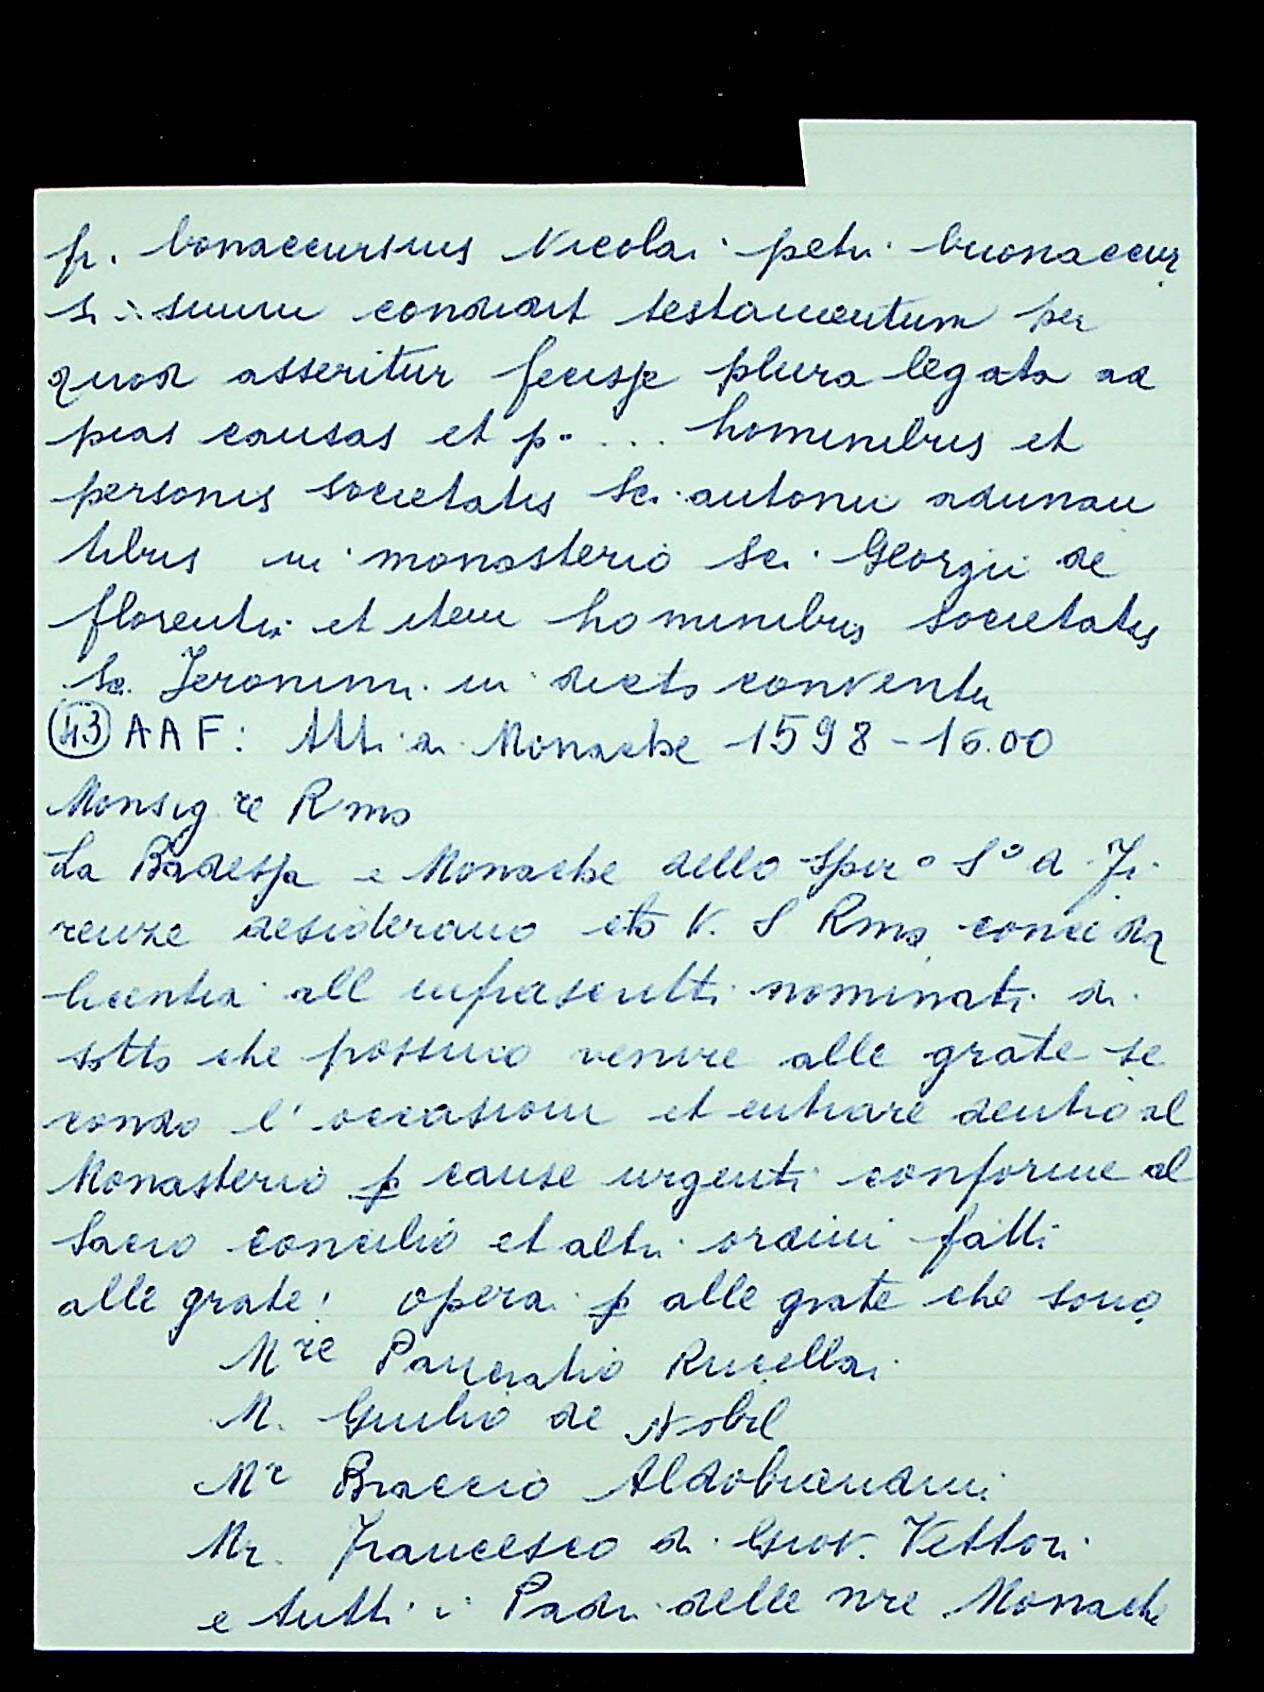 fr. bonaccursius Nicolai petri buonaccur
si suum condidit testamentum per
quod asseritur fecisse plura legata ad
pias causas et p. ... hominibus et
personis societatis Sci. antonii adunan
tibus in monasterio Sci. Georgii de
florentia et item hominibus societatis
Sci. Jeronimi in dicto conventu
(43) AAF: Atti di Monache 1598-1600
Monsig re Rmo
La Badessa e Monache dello Spir o S o di Fi
renze desiderano che V. S Rma conceda
licentia all infrascritti nominati di
sotto che possino venire alle grate se
condo l'occasioni et entrare dentro al
Monasterio p cause urgenti conforme al
Sacro concilio et altri ordini fatti
alle grate: operai p alle grate che sono
M re Pancratio Rucellai
M. Giulio de Nobil
M r Braccio Aldobrendini
Mr. Francesco di Giov. Vettori
e tutti i Padri delle nre Monache